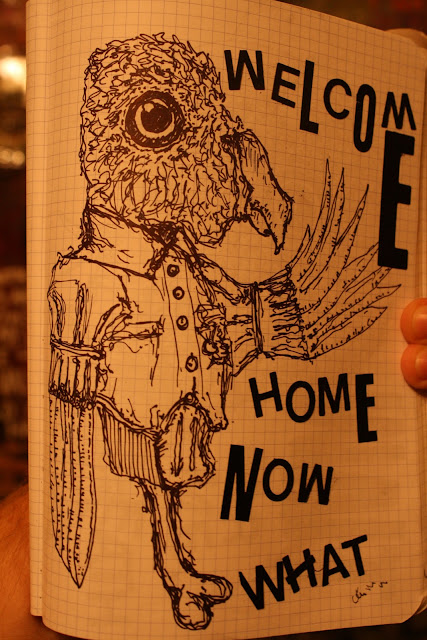 WELCOME
HOME
NOW
WHAT